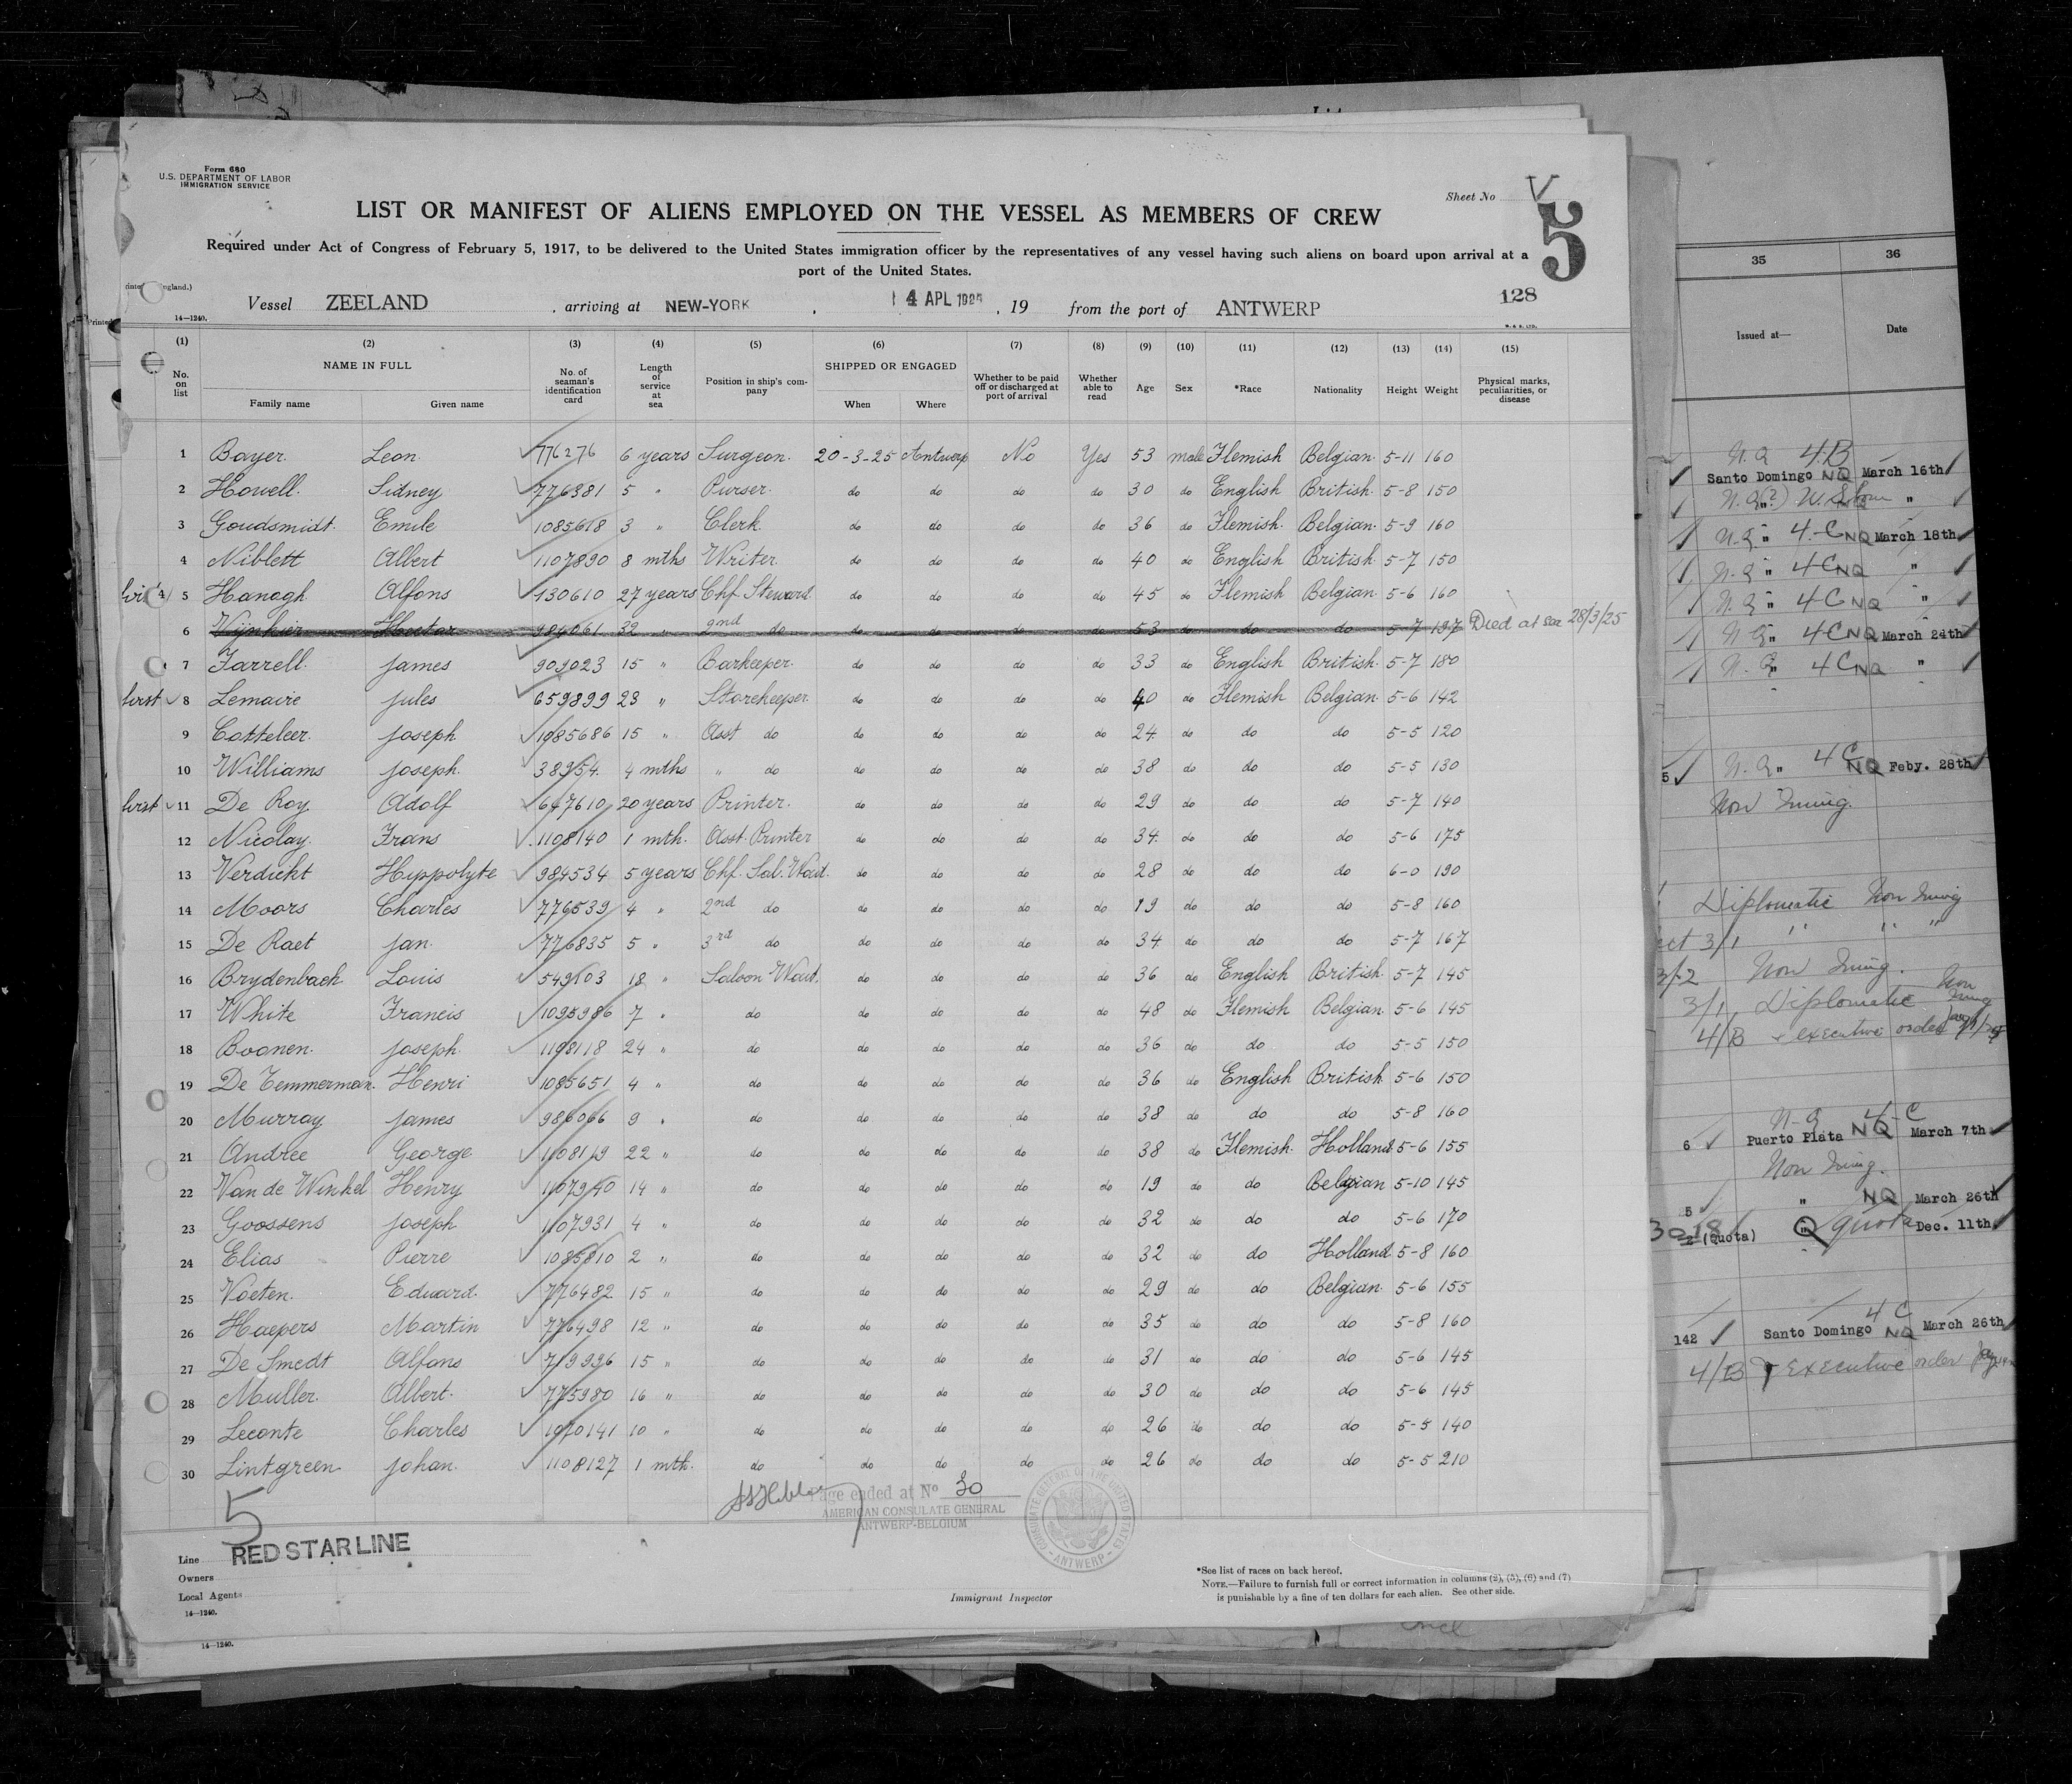 Form 680
U.S. DEPARTMENT OF LABOR
IMMIGRATION SERVICE
Sheet No
5
LIST OR MANIFEST OF ALIENS EMPLOYED ON THE VESSEL AS MEMBERS OF CREW
Required under Act of Congress of February 5, 1917, to be delivered to the United States immigration officer by the representatives of any vessel having such aliens on board upon arrival at a
port of the United States.
Vessel ZEELAND, arriving at NEW-YORK, 4 APL 1925, 19 from the port of ANTWERP 128
14—1240.
(1) (2) (3) (4) (5) (6) (7) (8) (9) (10) (11) (12) (13) (14) (15)
No. on list NAME IN FULL Family name Given name No. of seaman's identification card Length of service at sea Position in ship's company SHIPPED OR ENGAGED When Where Whether to be paid off or discharged at port of arrival Whether able to read Age Sex *Race Nationality Height Weight Physical marks, peculiarities, or disease
1 Bayer. Leon. 776276 6 years Surgeon. 20-3-25 Antwerp No Yes 53 male Flemish Belgian. 5-11 160
2 Howell. Sidney 776381 5 " Purser. do do do do 30 do English British. 5-8 150
3 Goudsmidt. Emile 1085618 3 " Clerk do do do do 36 do Flemish. Belgian. 5-9 160
4 Niblett Albert 1107890 8 mths Writer. do do do do 40 do English British. 5-7 150
5 Hanagh Alfons 130610 27 years Chf Steward do do do do 45 do Flemish Belgian 5-6 160
6 Hector 984061 32 " 2nd do do do do do 53 do do do 5-7 137 Died at sea 28/3/25
7 Farrell. James 909023 15 " Barkeeper. do do do do 33 do English British. 5-7 180
8 Lemaire Jules 659899 23 " Storekeeper. do do do do 40 do Flemish Belgian. 5-6 142
9 Cotteleer. Joseph 1085686 15 " Asst do do do do do 24 do do do 5-5 120
10 Williams Joseph. 38954. 4 mths " do do do do do 38 do do do 5-5 130
11 De Roy Adolf 647610 20 years Printer. do do do do 29 do do do 5-7 140
12 Nicolay. Frans 1108140 1 mth. Asst. Printer do do do do 34 do do do 5-6 175
13 Verdickt Hippolyte 984534 5 years Chf. Sal. Wait. do do do do 28 do do do 6-0 190
14 Moors Charles 776539 4 " 2nd do do do do do 19 do do do 5-8 160
15 De Raet Jan. 776835 5 " 3rd do do do do do 34 do do do 5-7 167
16 Brydenbach Louis 549103 18 " Saloon Wait. do do do do 36 do English British. 5-7 145
17 White Francis 1095986 7 " do do do do do 48 do Flemish Belgian. 5-6 145
18 Boonen. Joseph. 1198118 24 " do do do do do 36 do do do 5-5 150
19 De Temmerman. Henri 1085651 4 " do do do do do 36 do English British 5-6 150
20 Murray James 986066 9 " do do do do do 38 do do do 5-8 160
21 Andree George 1108119 22 " do do do do do 38 do Flemish. Holland. 5-6 155
22 Van de Winkel Henry 1107940 14 " do do do do do 19 do do Belgian 5-10 145
23 Goossens Joseph 1107931 4 " do do do do do 32 do do do 5-6 170
24 Elias Pierre 1085810 2 " do do do do do 32 do do Holland. 5-8 160
25 Voeten. Eduard. 776482 15 " do do do do do 29 do do Belgian. 5-6 155
26 Haepers Martin 776498 12 " do do do do do 35 do do do 5-8 160
27 De Smedt Alfons 719996 15 " do do do do do 31 do do do 5-6 145
28 Muller. Albert. 775980 16 " do do do do do 30 do do do 5-6 145
29 Leconte Charles 1070141 10 " do do do do do 26 do do do 5-5 140
30 Lintgreen Johan. 1108127 1 mth. do do do do do 26 do do do 5-5 210
5
Page ended at No 30
AMERICAN CONSULATE GENERAL
ANTWERP-BELGIUM
CONSULATE GENERAL OF THE UNITED STATES ANTWERP
Line RED STAR LINE
Owners
Local Agents
14—1240.
Immigrant Inspector
*See list of races on back hereof.
NOTE.—Failure to furnish full or correct information in columns (2), (5), (6) and (7)
is punishable by a fine of ten dollars for each alien. See other side.
14—1240.
35 36
Issued at— Date
N.Q 4.B
Santo Domingo NQ March 16th
N.Q " 4-C NQ March 18th
N.Q " 4C NQ "
N.Q " 4C NQ "
N.Q " 4C NQ March 24th
N.Q " 4C NQ "
5 N.Q " 4C NQ Feby. 28th
Non Immig.
Diplomatic Non Immig
3/1 " " "
3/2 Non Immig.
3/1 Diplomatic Non Immig
4/B executive order
N-Q 4-C
6 Puerto Plata NQ March 7th
Non Immig.
5 " NQ March 26th
(Quota) Q quota Dec. 11th
4C
142 Santo Domingo NQ March 26th
4/B executive order